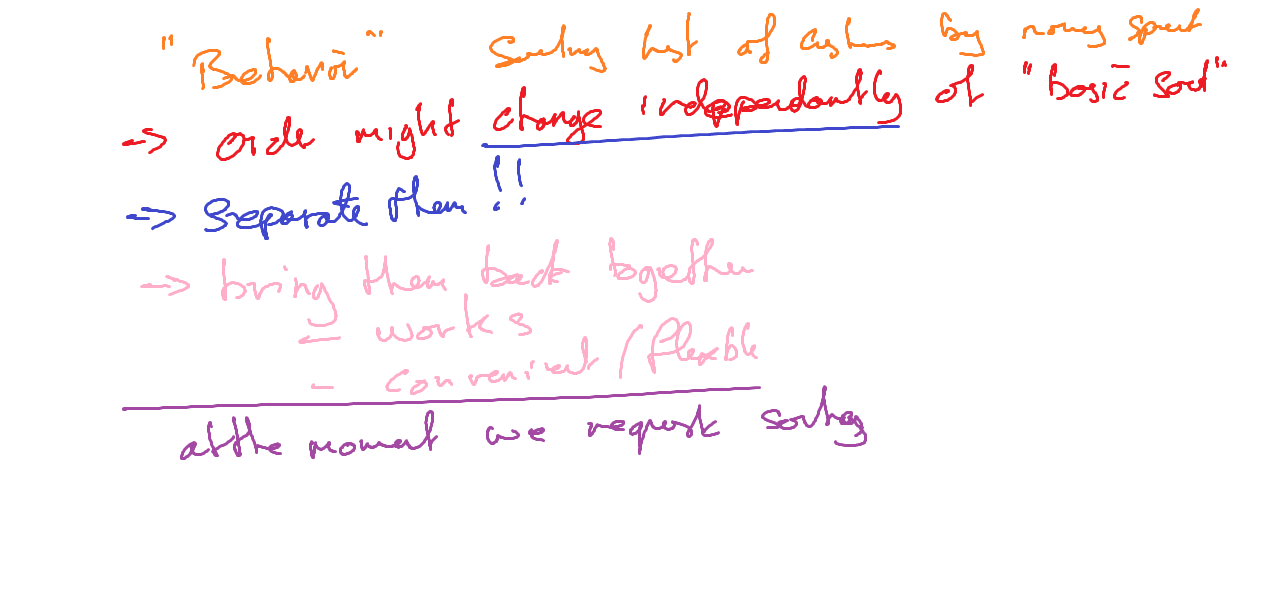 "Behavior" Sorting list of customers by money spent
-> order might change independantly of "basic sort"
-> Separate them !!
-> bring them back together
- works
- convenient / flexible
at the moment we request sorting